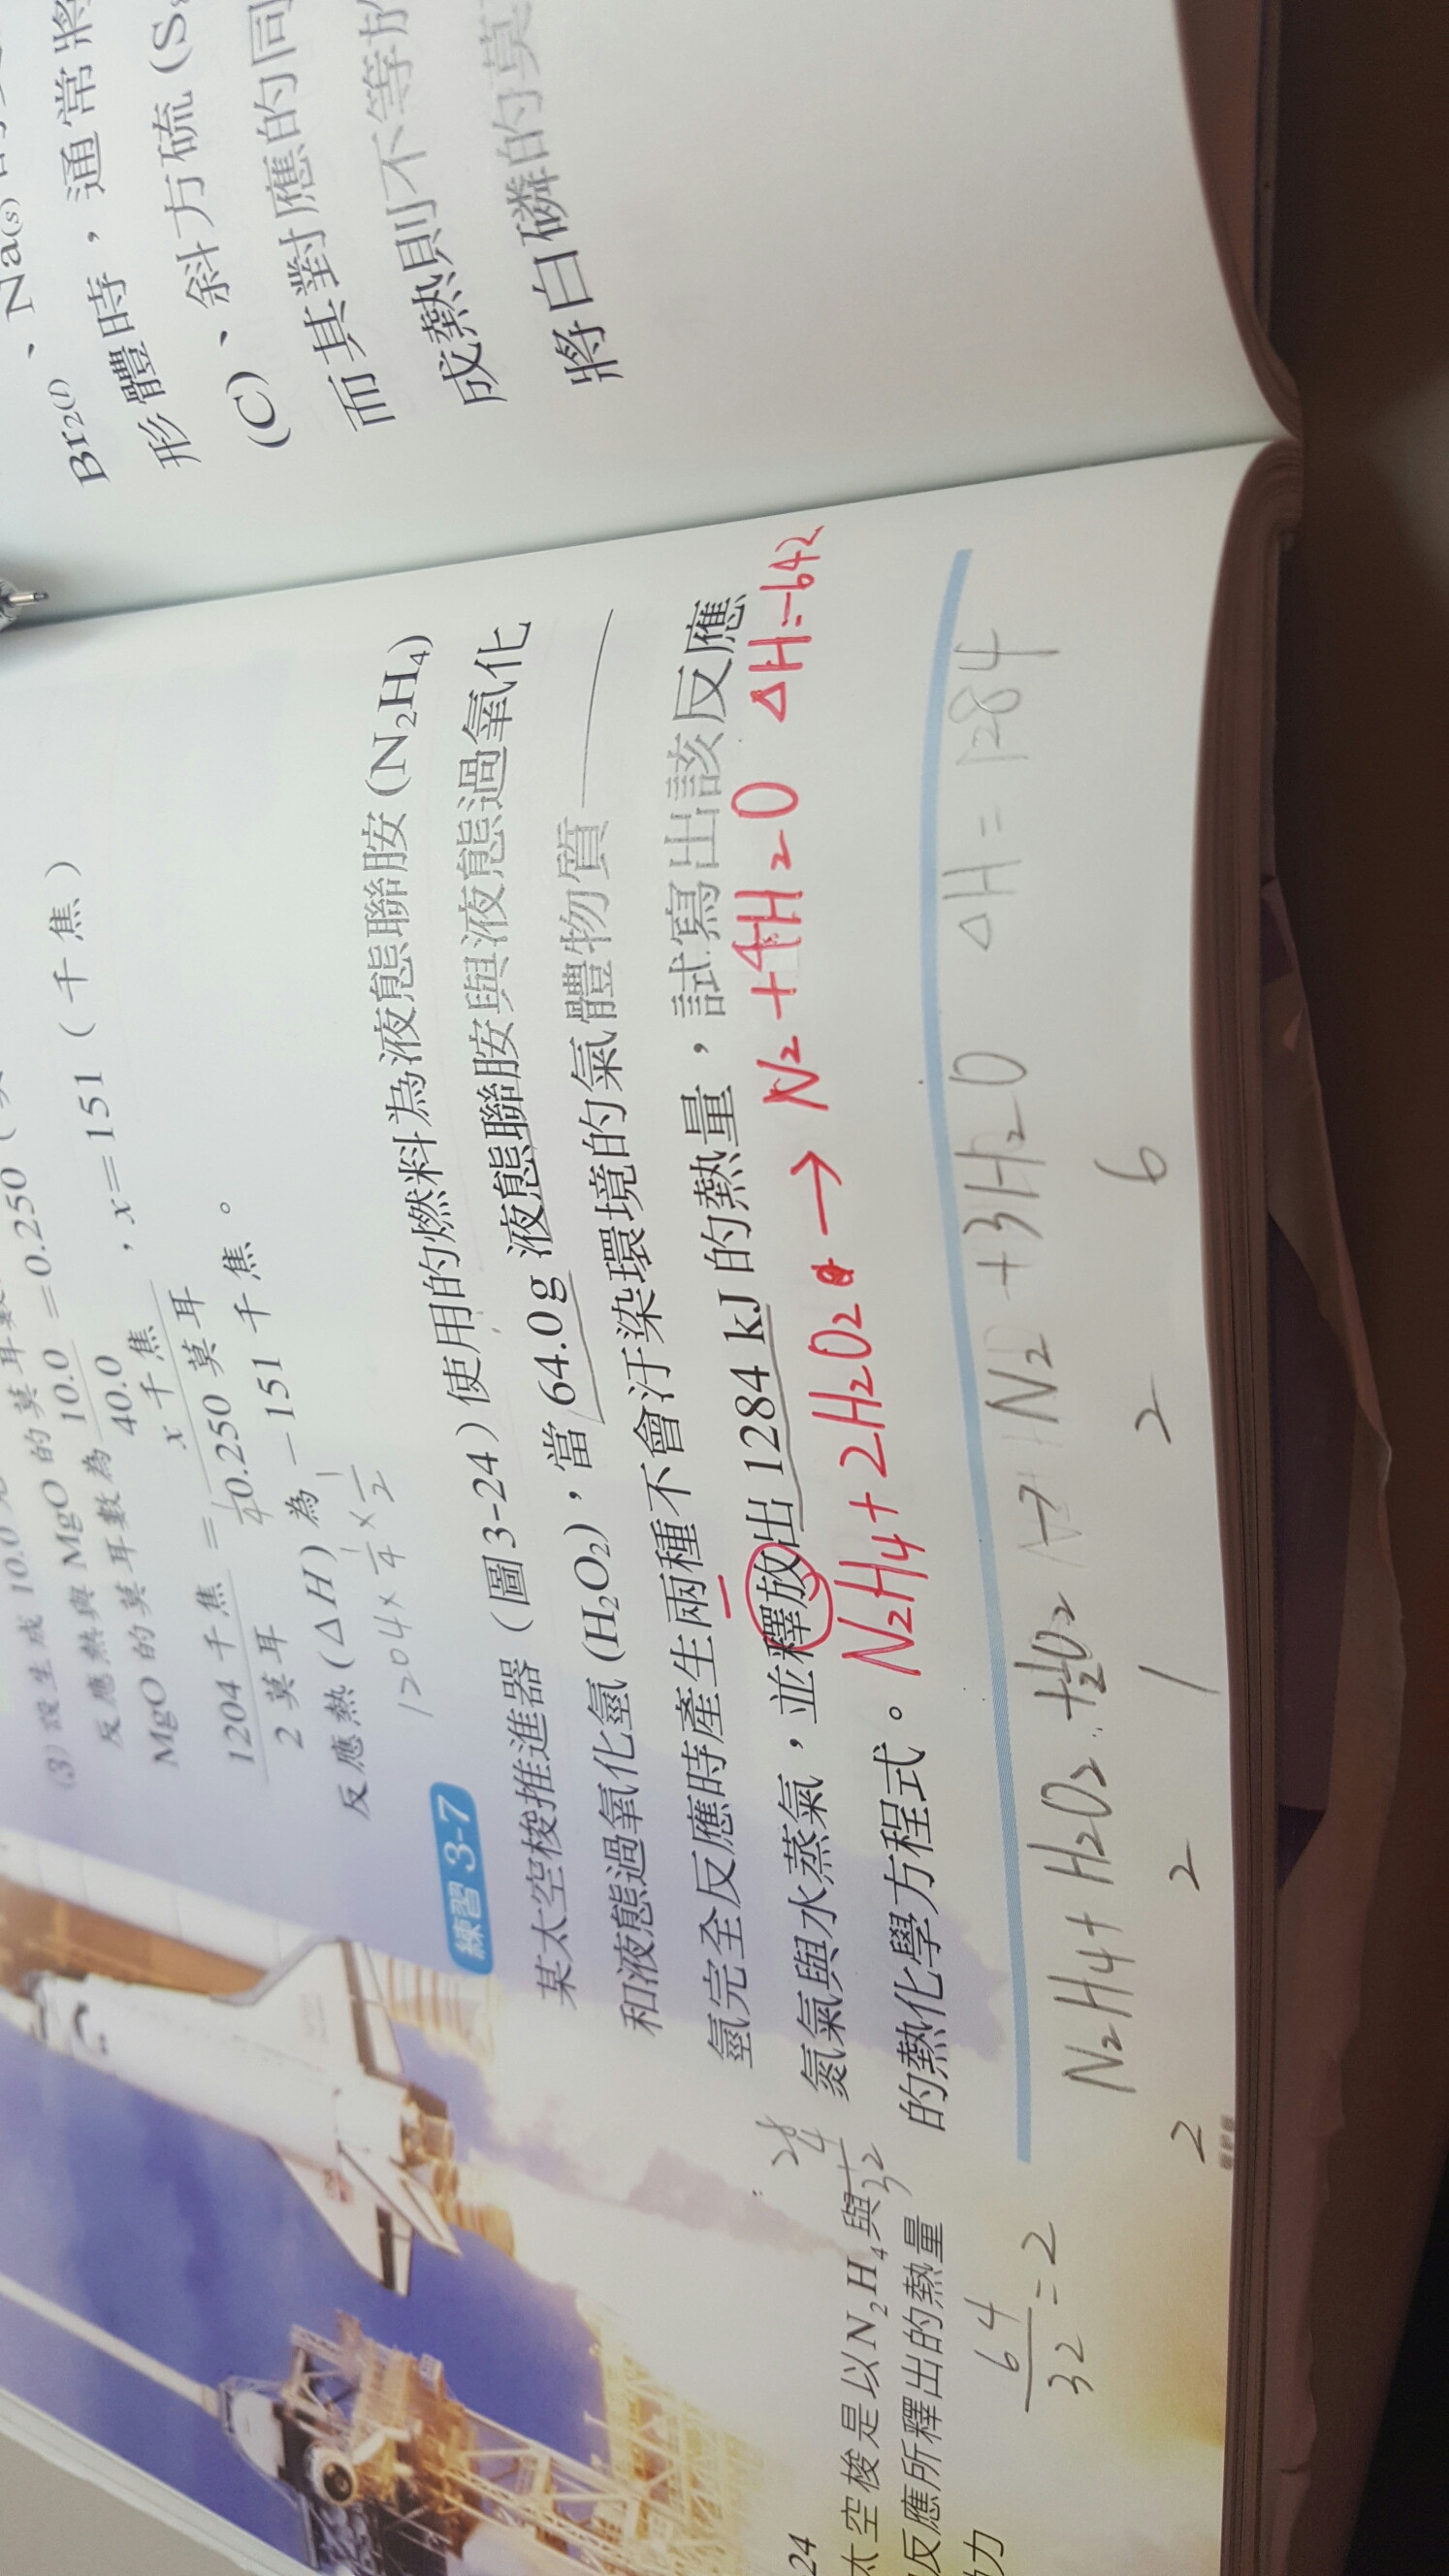 Na(s)
Br₂(l)、
形體時，通常將
(C)、斜方硫 (S₈
而其對應的同
成熱則不等於
將白磷的莫
(3) 設生成 10.0
反應熱與 MgO 的莫耳數
MgO 的莫耳數為 10.0/40.0 = 0.250
1204 千焦/2 莫耳 = x 千焦/0.250 莫耳 , x = 151 (千焦)
反應熱 (ΔH) 為 −151 千焦。
1204 × 1/4 × 1/2
練習 3-7
某太空梭推進器（圖3-24）使用的燃料為液態聯胺 (N₂H₄)
和液態過氧化氫 (H₂O₂)，當 64.0 g 液態聯胺與液態過氧化
氫完全反應時產生兩種不會汙染環境的氣體物質——
氮氣與水蒸氣，並釋放出 1284 kJ 的熱量，試寫出該反應
的熱化學方程式。
N₂H₄ + 2H₂O₂ → N₂ + 4H₂O ΔH = −642
N₂H₄ + H₂O₂ + ½O₂ → N₂ + 3H₂O ΔH = 1284
2 2 1 2 6
64/32 = 2
24
太空梭是以 N₂H₄ 與
反應所釋出的熱量
力